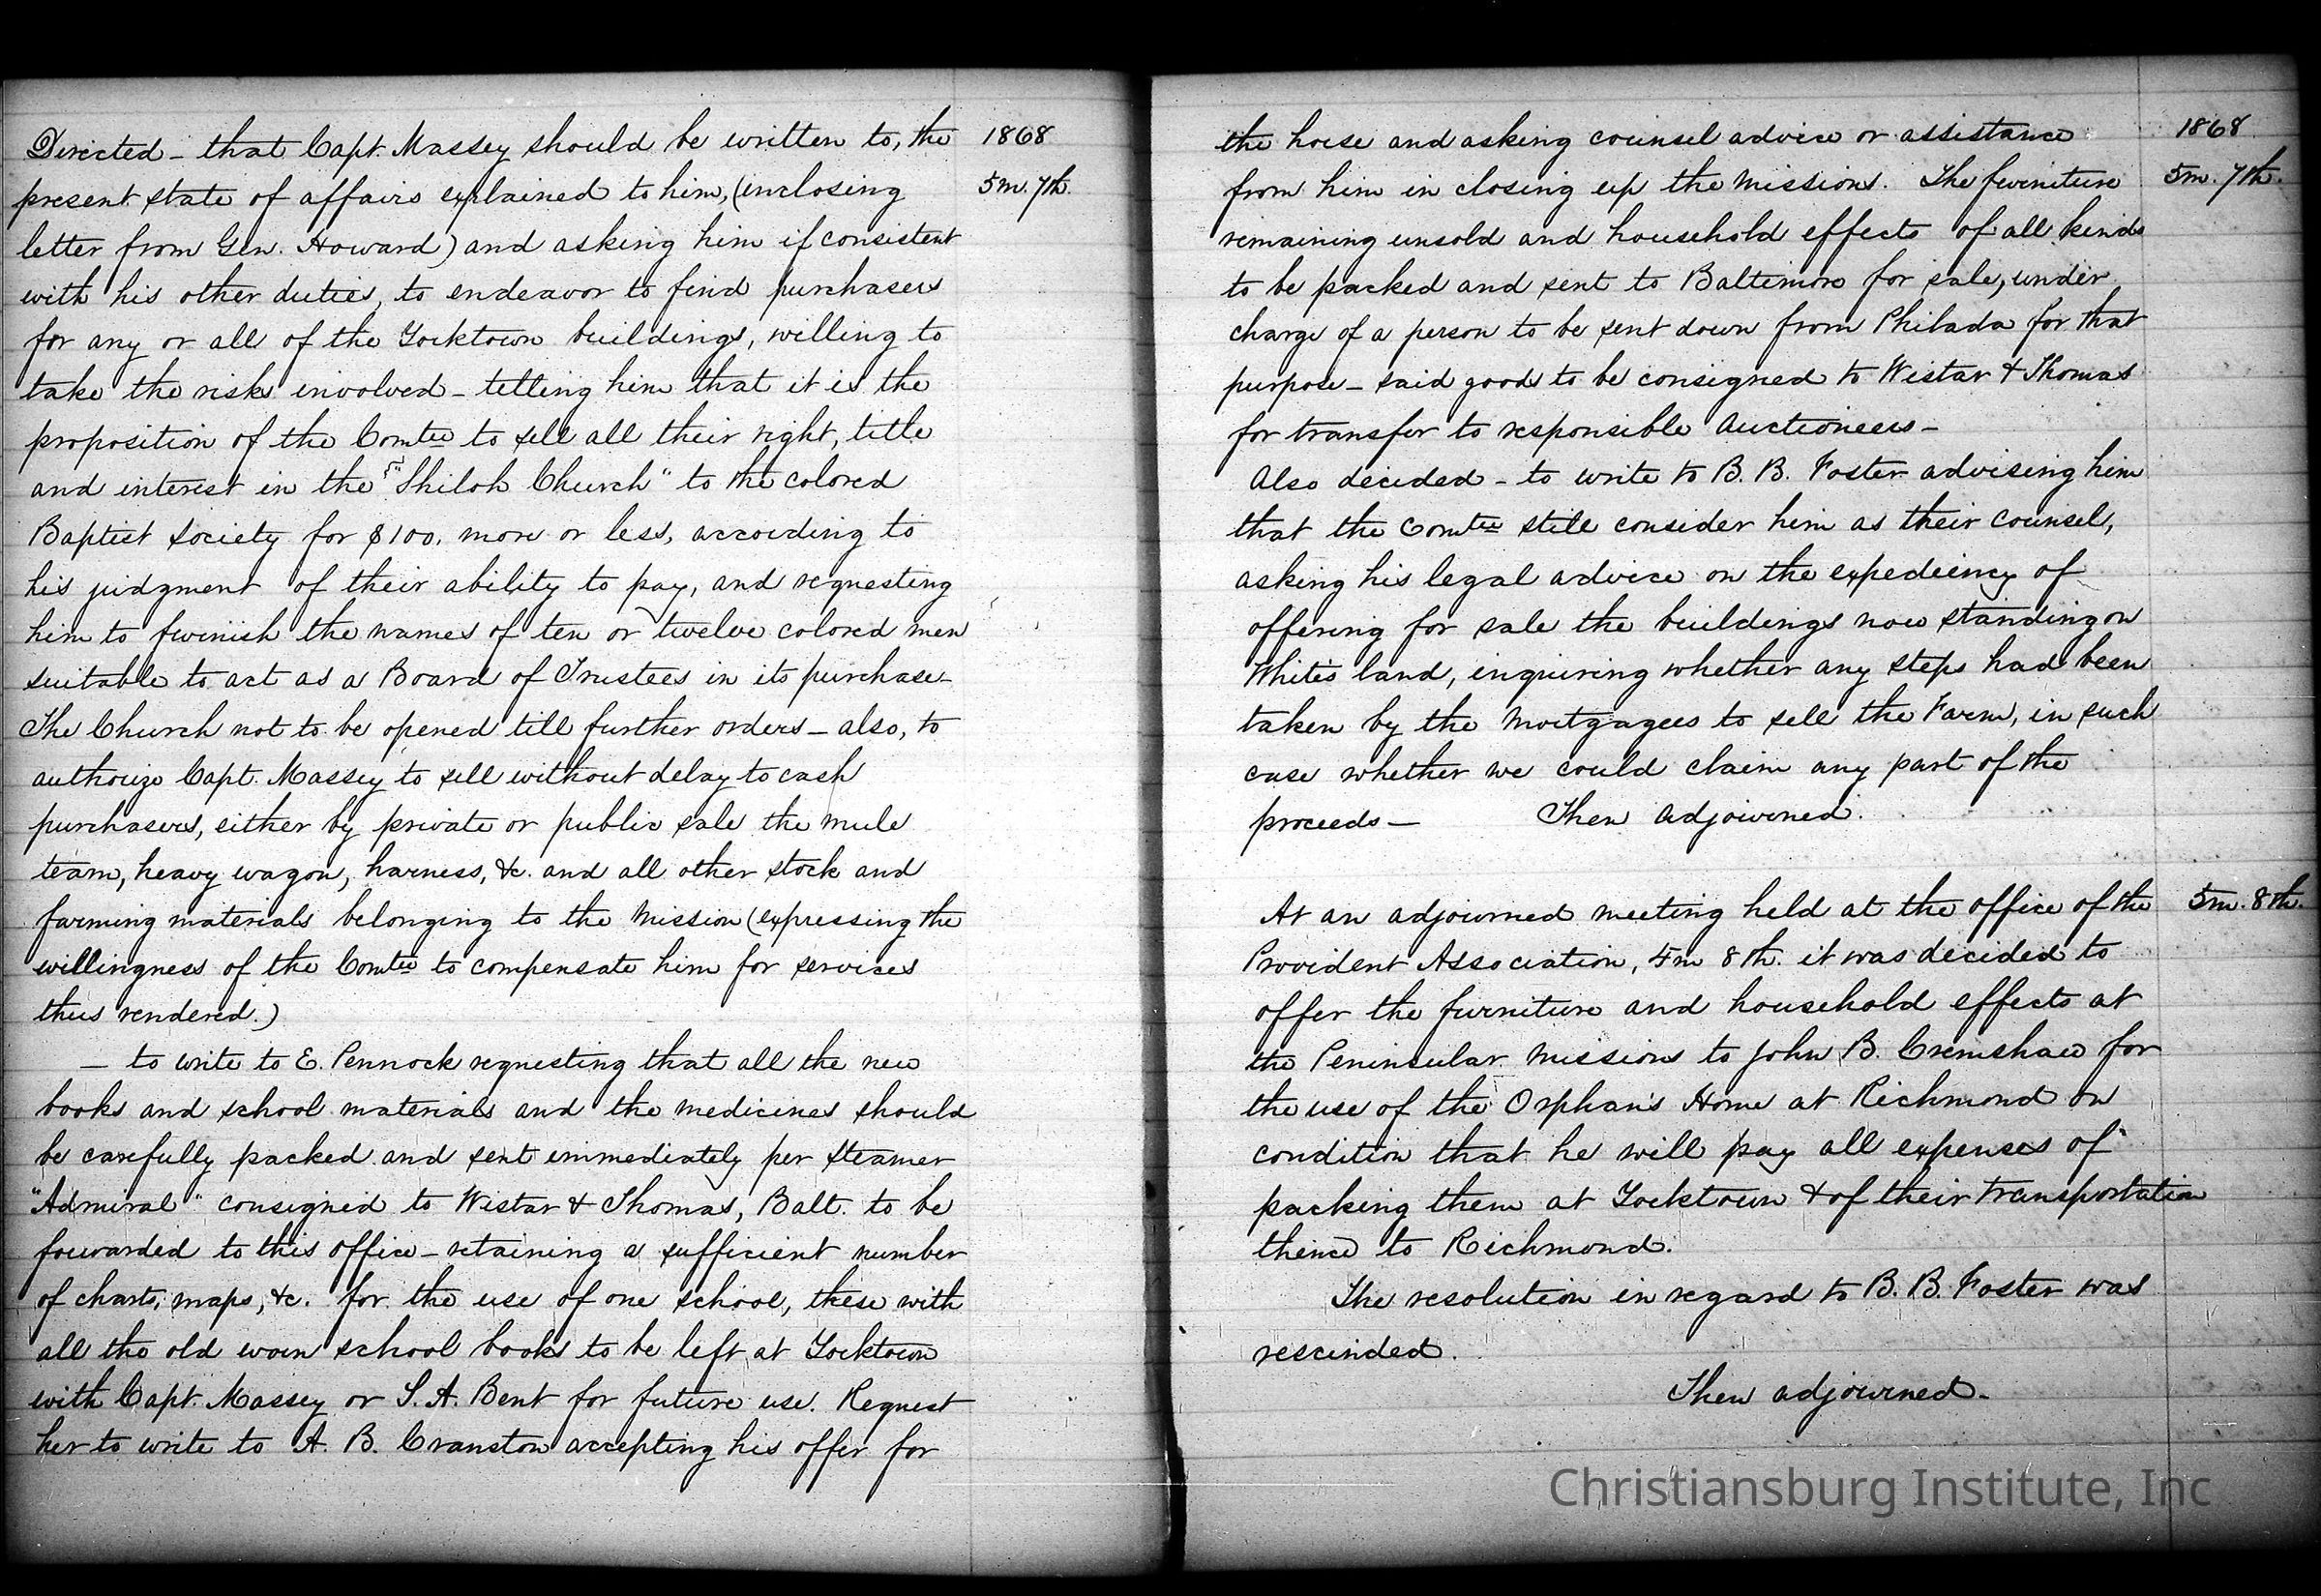 Directed – that Capt. Massey should be written to, the 1868
present state of affairs explained to him, (enclosing 5m. 7th.
letter from Gen. Howard) and asking him if consistent
with his other duties, to endeavor to find purchasers
for any or all of the Yorktown buildings, willing to
take the risks involved – telling him that it is the
proposition of the Comtee to sell all their right, title
and interest in the "Shiloh Church" to the colored
Baptist Society for $100. more or less, according to
his judgment of their ability to pay, and requesting
him to furnish the names of ten or twelve colored men
suitable to act as a Board of Trustees in its purchase –
The Church not to be opened till further orders – also, to
authorize Capt. Massey to sell without delay to cash
purchasers, either by private or public sale the mule
team, heavy wagon, harness, &c. and all other stock and
farming materials belonging to the Mission (expressing the
willingness of the Comtee to compensate him for services
thus rendered.)
– to write to E. Pennock requesting that all the new
books and school materials and the medicines should
be carefully packed and sent immediately per Steamer
"Admiral" consigned to Wistar & Thomas, Balt. to be
forwarded to this office – retaining a sufficient number
of charts, maps, &c. for the use of one school, these with
all the old worn school books to be left at Yorktown
with Capt. Massey or S. A. Bent for future use. Request
her to write to A. B. Cranston accepting his offer for
the horse and asking counsel advice or assistance 1868
from him in closing up the Missions. The furniture 5m. 7th.
remaining unsold and household effects of all kinds
to be packed and sent to Baltimore for sale, under
charge of a person to be sent down from Philada for that
purpose – said goods to be consigned to Wistar & Thomas
for transfer to responsible Auctioneers –
Also decided – to write to B. B. Foster advising him
that the Comtee still consider him as their Counsel,
asking his legal advice on the expediency of
offering for sale the buildings now standing on
White's land, inquiring whether any steps had been
taken by the Mortgagees to sell the Farm, in such
case whether we could claim any part of the
proceeds – Then adjourned.
At an adjourned meeting held at the office of the 5m. 8th.
Provident Association, 5m 8th. it was decided to
offer the furniture and household effects at
the Peninsular Missions to John B. Crenshaw for
the use of the Orphan's Home at Richmond on
condition that he will pay all expenses of
packing them at Yorktown & of their transportation
thence to Richmond.
The resolution in regard to B. B. Foster was
rescinded.
Then adjourned –
Christiansburg Institute, Inc